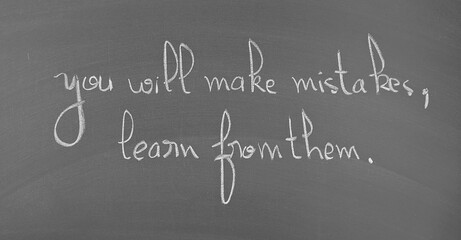 you will make mistakes,
learn from them.